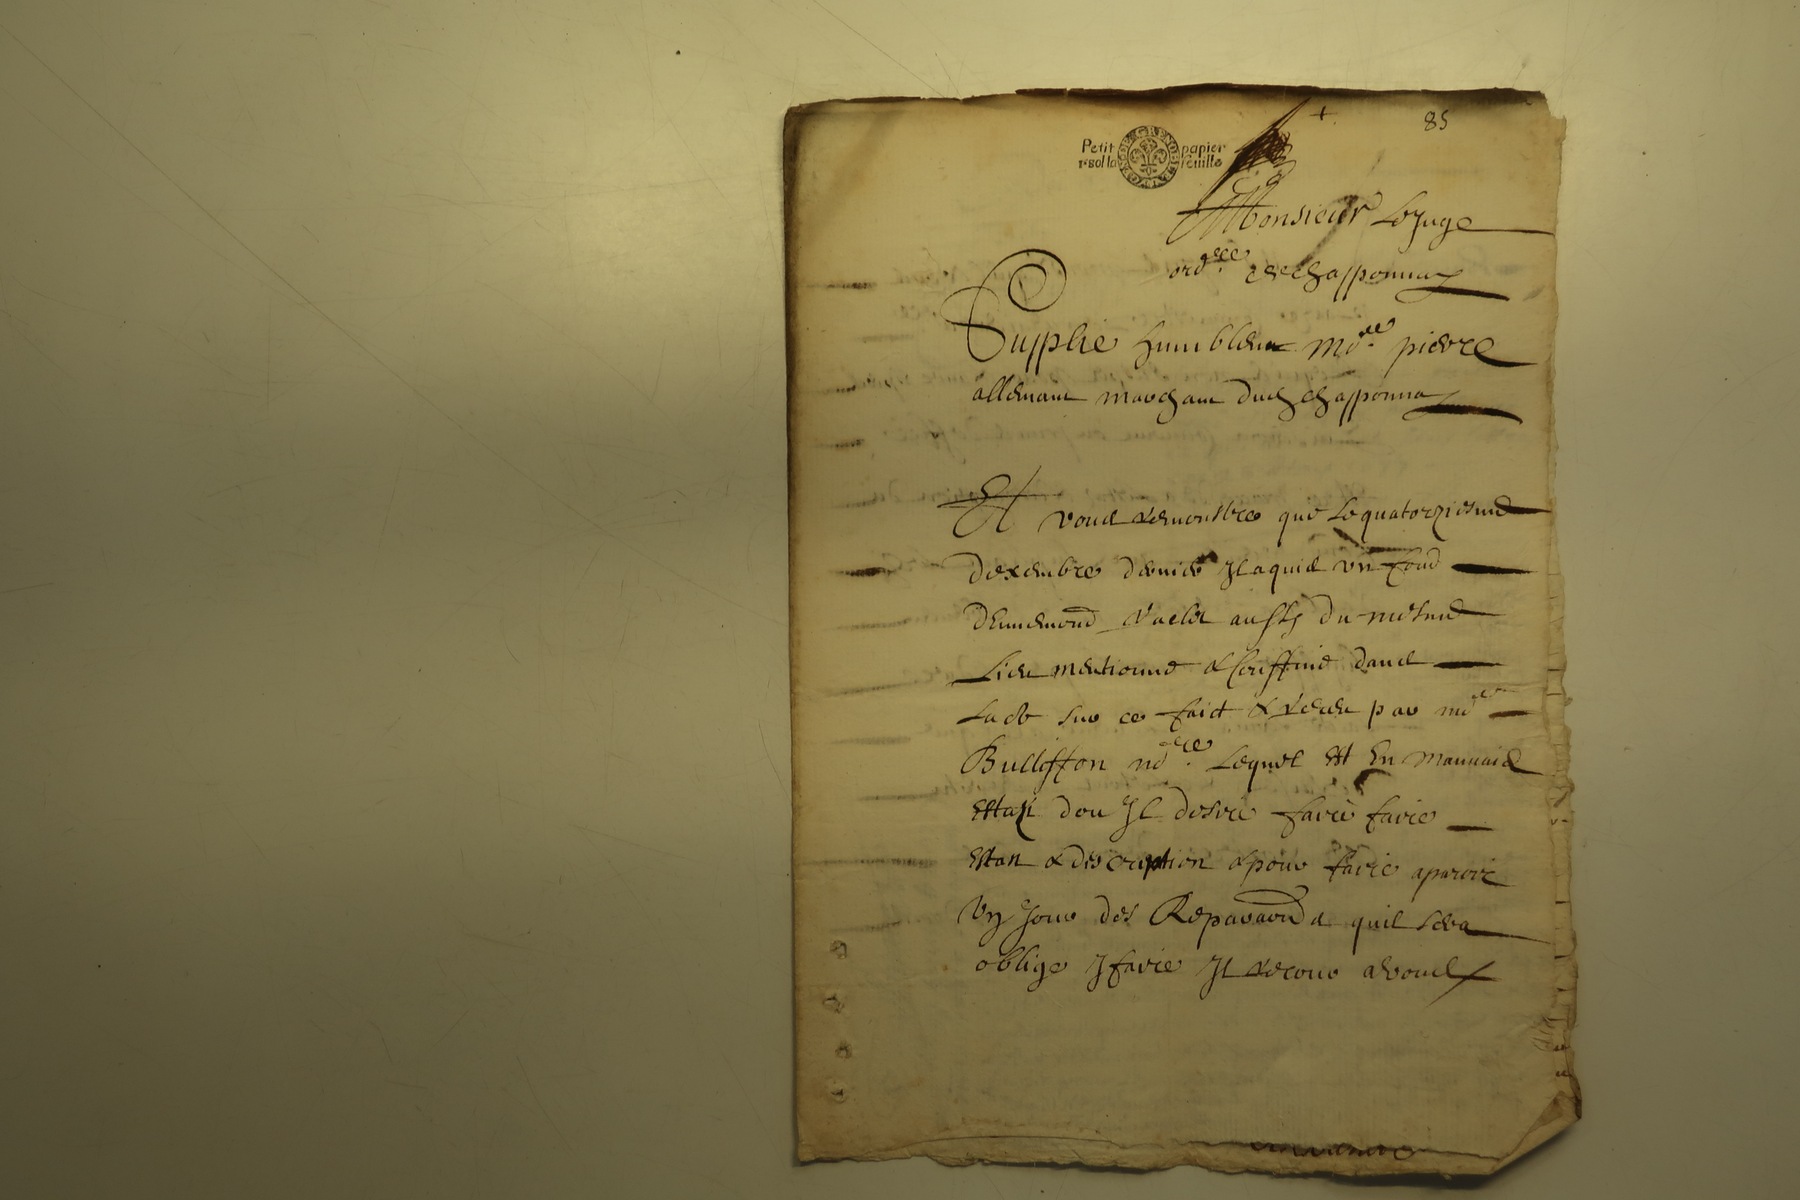 85
Petit papier
1 sol la feuille
Monsieur Le Juge
ord.re de Chapponnay
Supplie humblem mo.re pierre
allemant marchant dud Chapponnay
Et vous remonstre que Le quatorziesme
dexembre dernier Il aquis un fond
d'Ennemond aussy du mesme
Lieu mentionné & Confiné dans
Lacte sur ce faict & receu par me
Bullisson no.re Lequel est En mauvais
Estat dou Il desire faire faire
Estat & description & pour faire aparoir
Un Jour des Reparaons quil sera
oblige y faire Il recour a vous